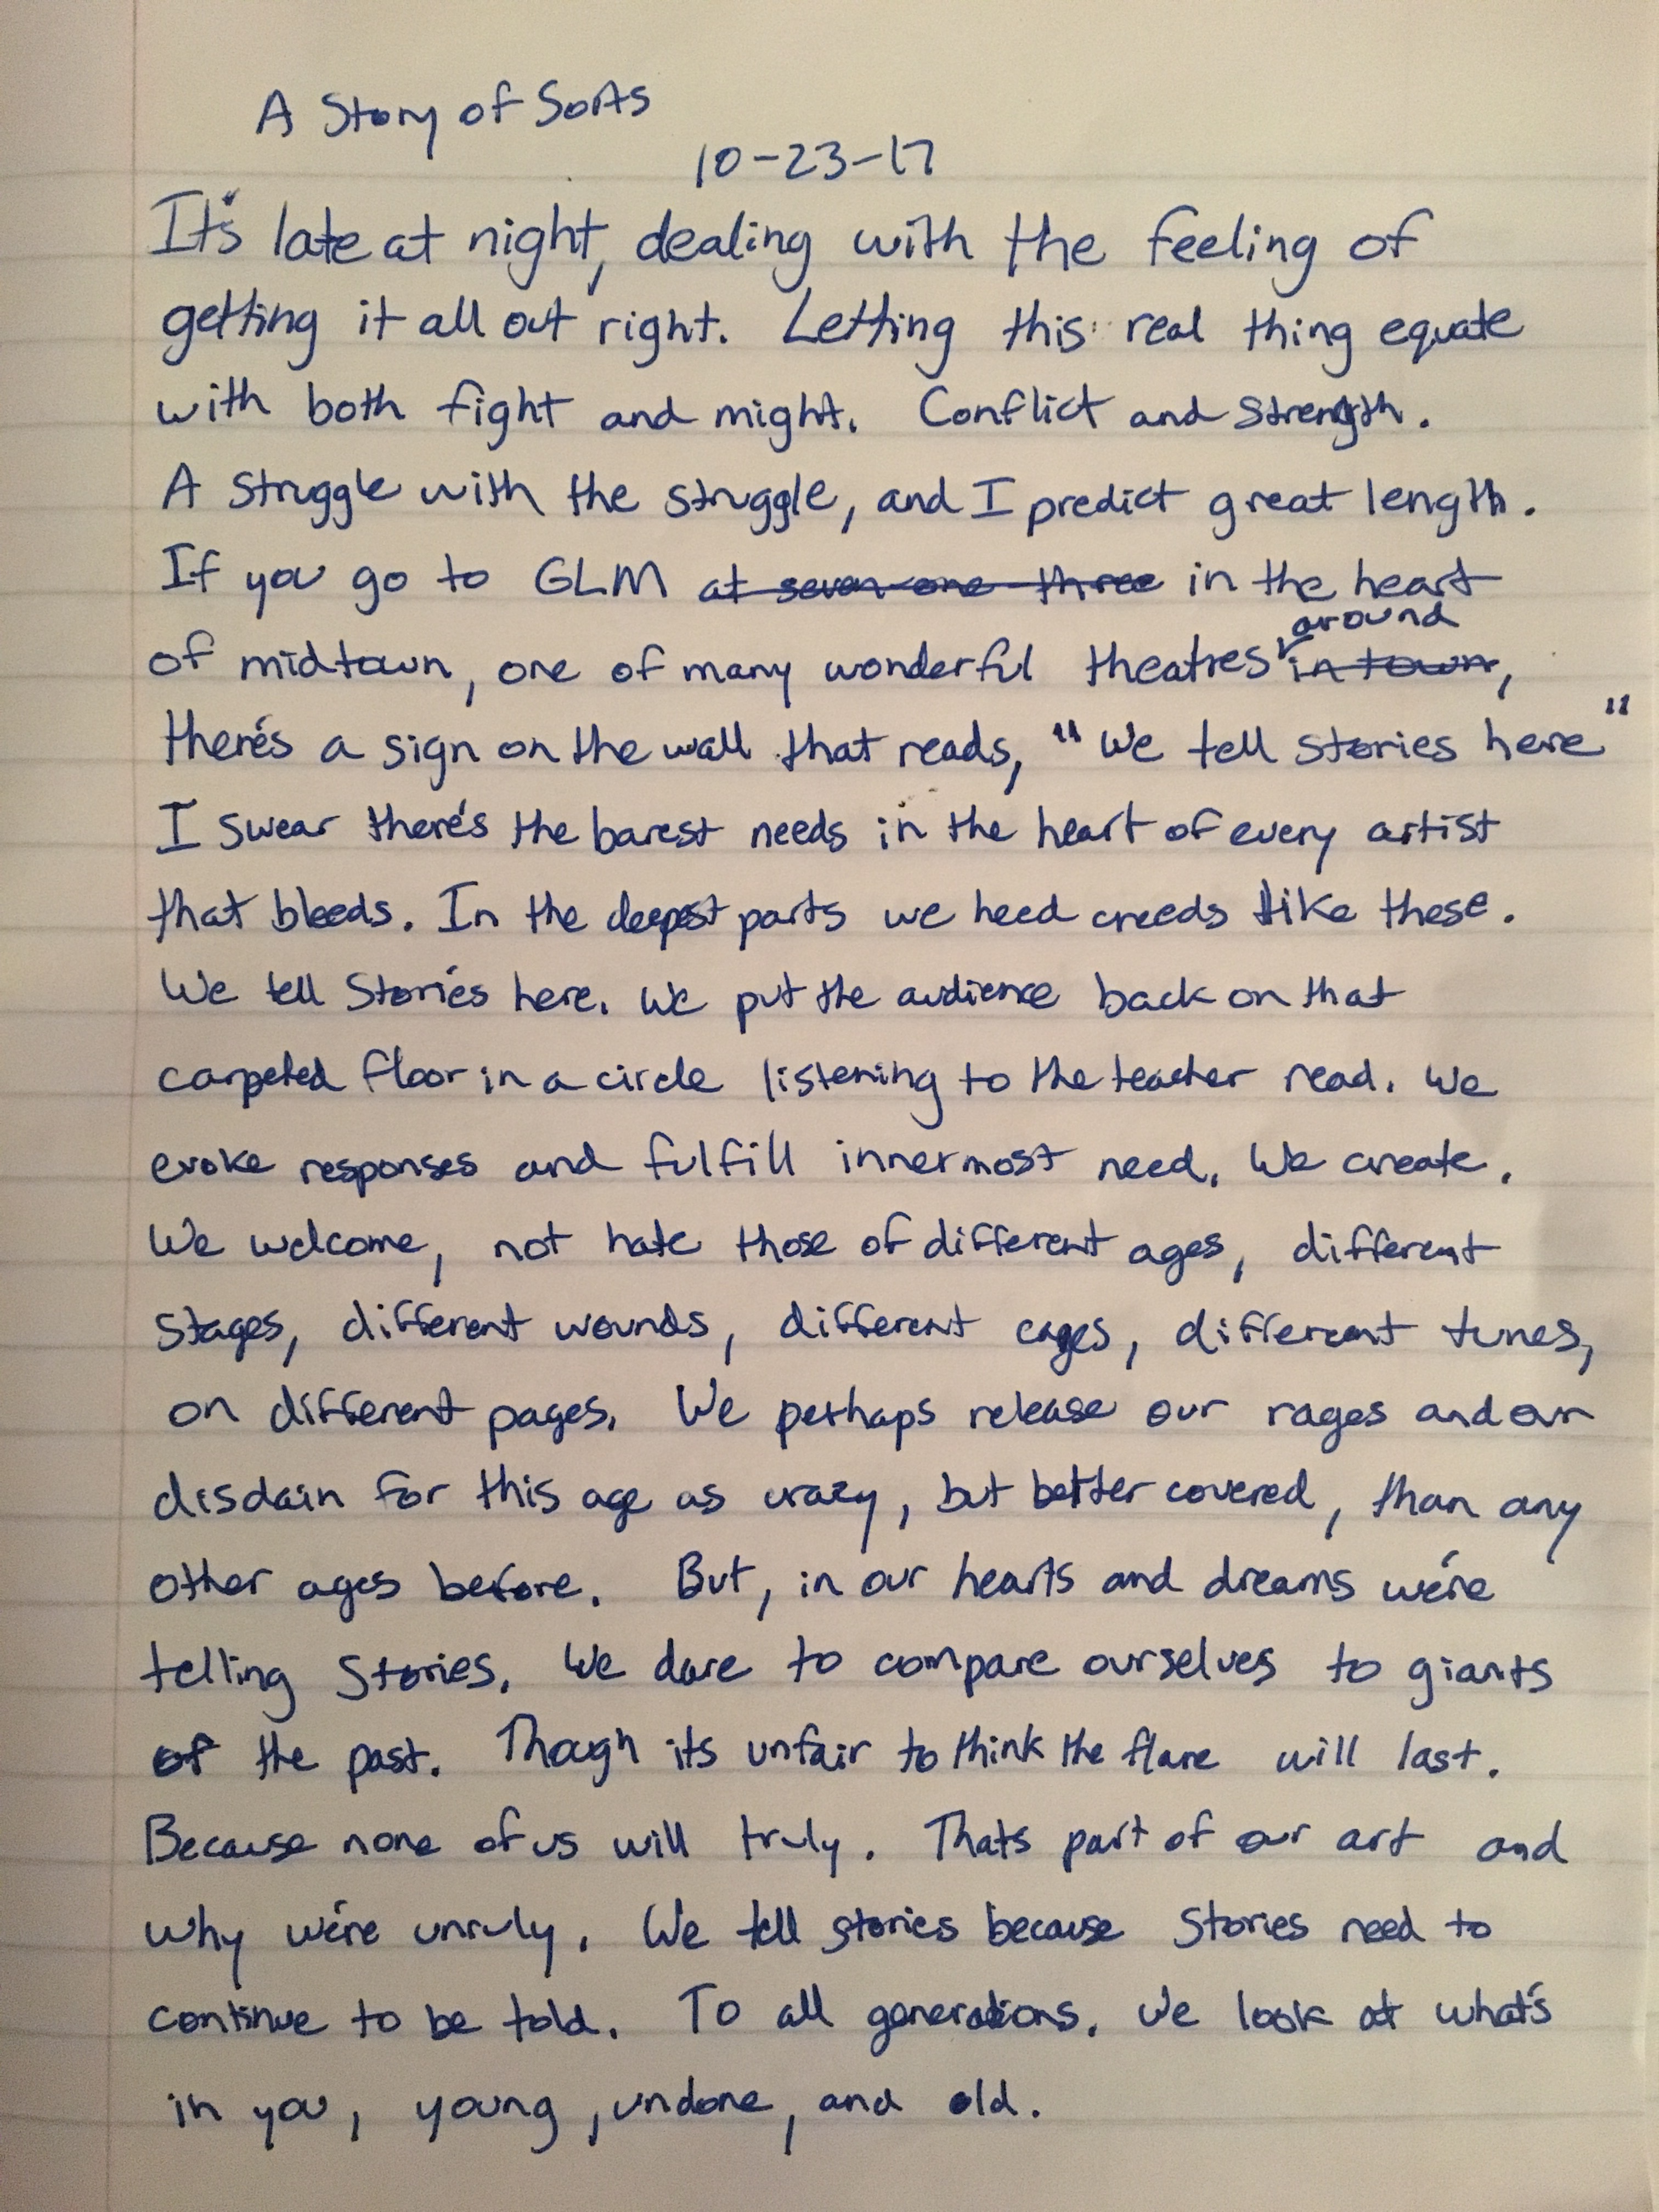 A Story of Sorts
10-23-17
It's late at night, dealing with the feeling of
getting it all out right. Letting this real thing equate
with both fight and might. Conflict and strength.
A struggle with the struggle, and I predict great length.
If you go to GLM at seven one three in the heart
around
of midtown, one of many wonderful theatres in town,
there's a sign on the wall that reads, "We tell stories here"
I swear there's the barest needs in the heart of every artist
that bleeds. In the deepest parts we heed creeds like these.
We tell Stories here. We put the audience back on that
carpeted floor in a circle listening to the teacher read. We
evoke responses and fulfill innermost need. We create.
We welcome, not hate those of different ages, different
stages, different wounds, different cages, different tunes,
on different pages. We perhaps release our rages and our
disdain for this age as crazy, but better covered, than any
other ages before. But, in our hearts and dreams we're
telling Stories. We dare to compare ourselves to giants
of the past. Though its unfair to think the flare will last.
Because none of us will truly. Thats part of our art and
why we're unruly. We tell stories because Stories need to
continue to be told. To all generations. We look at what's
in you, young, undone, and old.